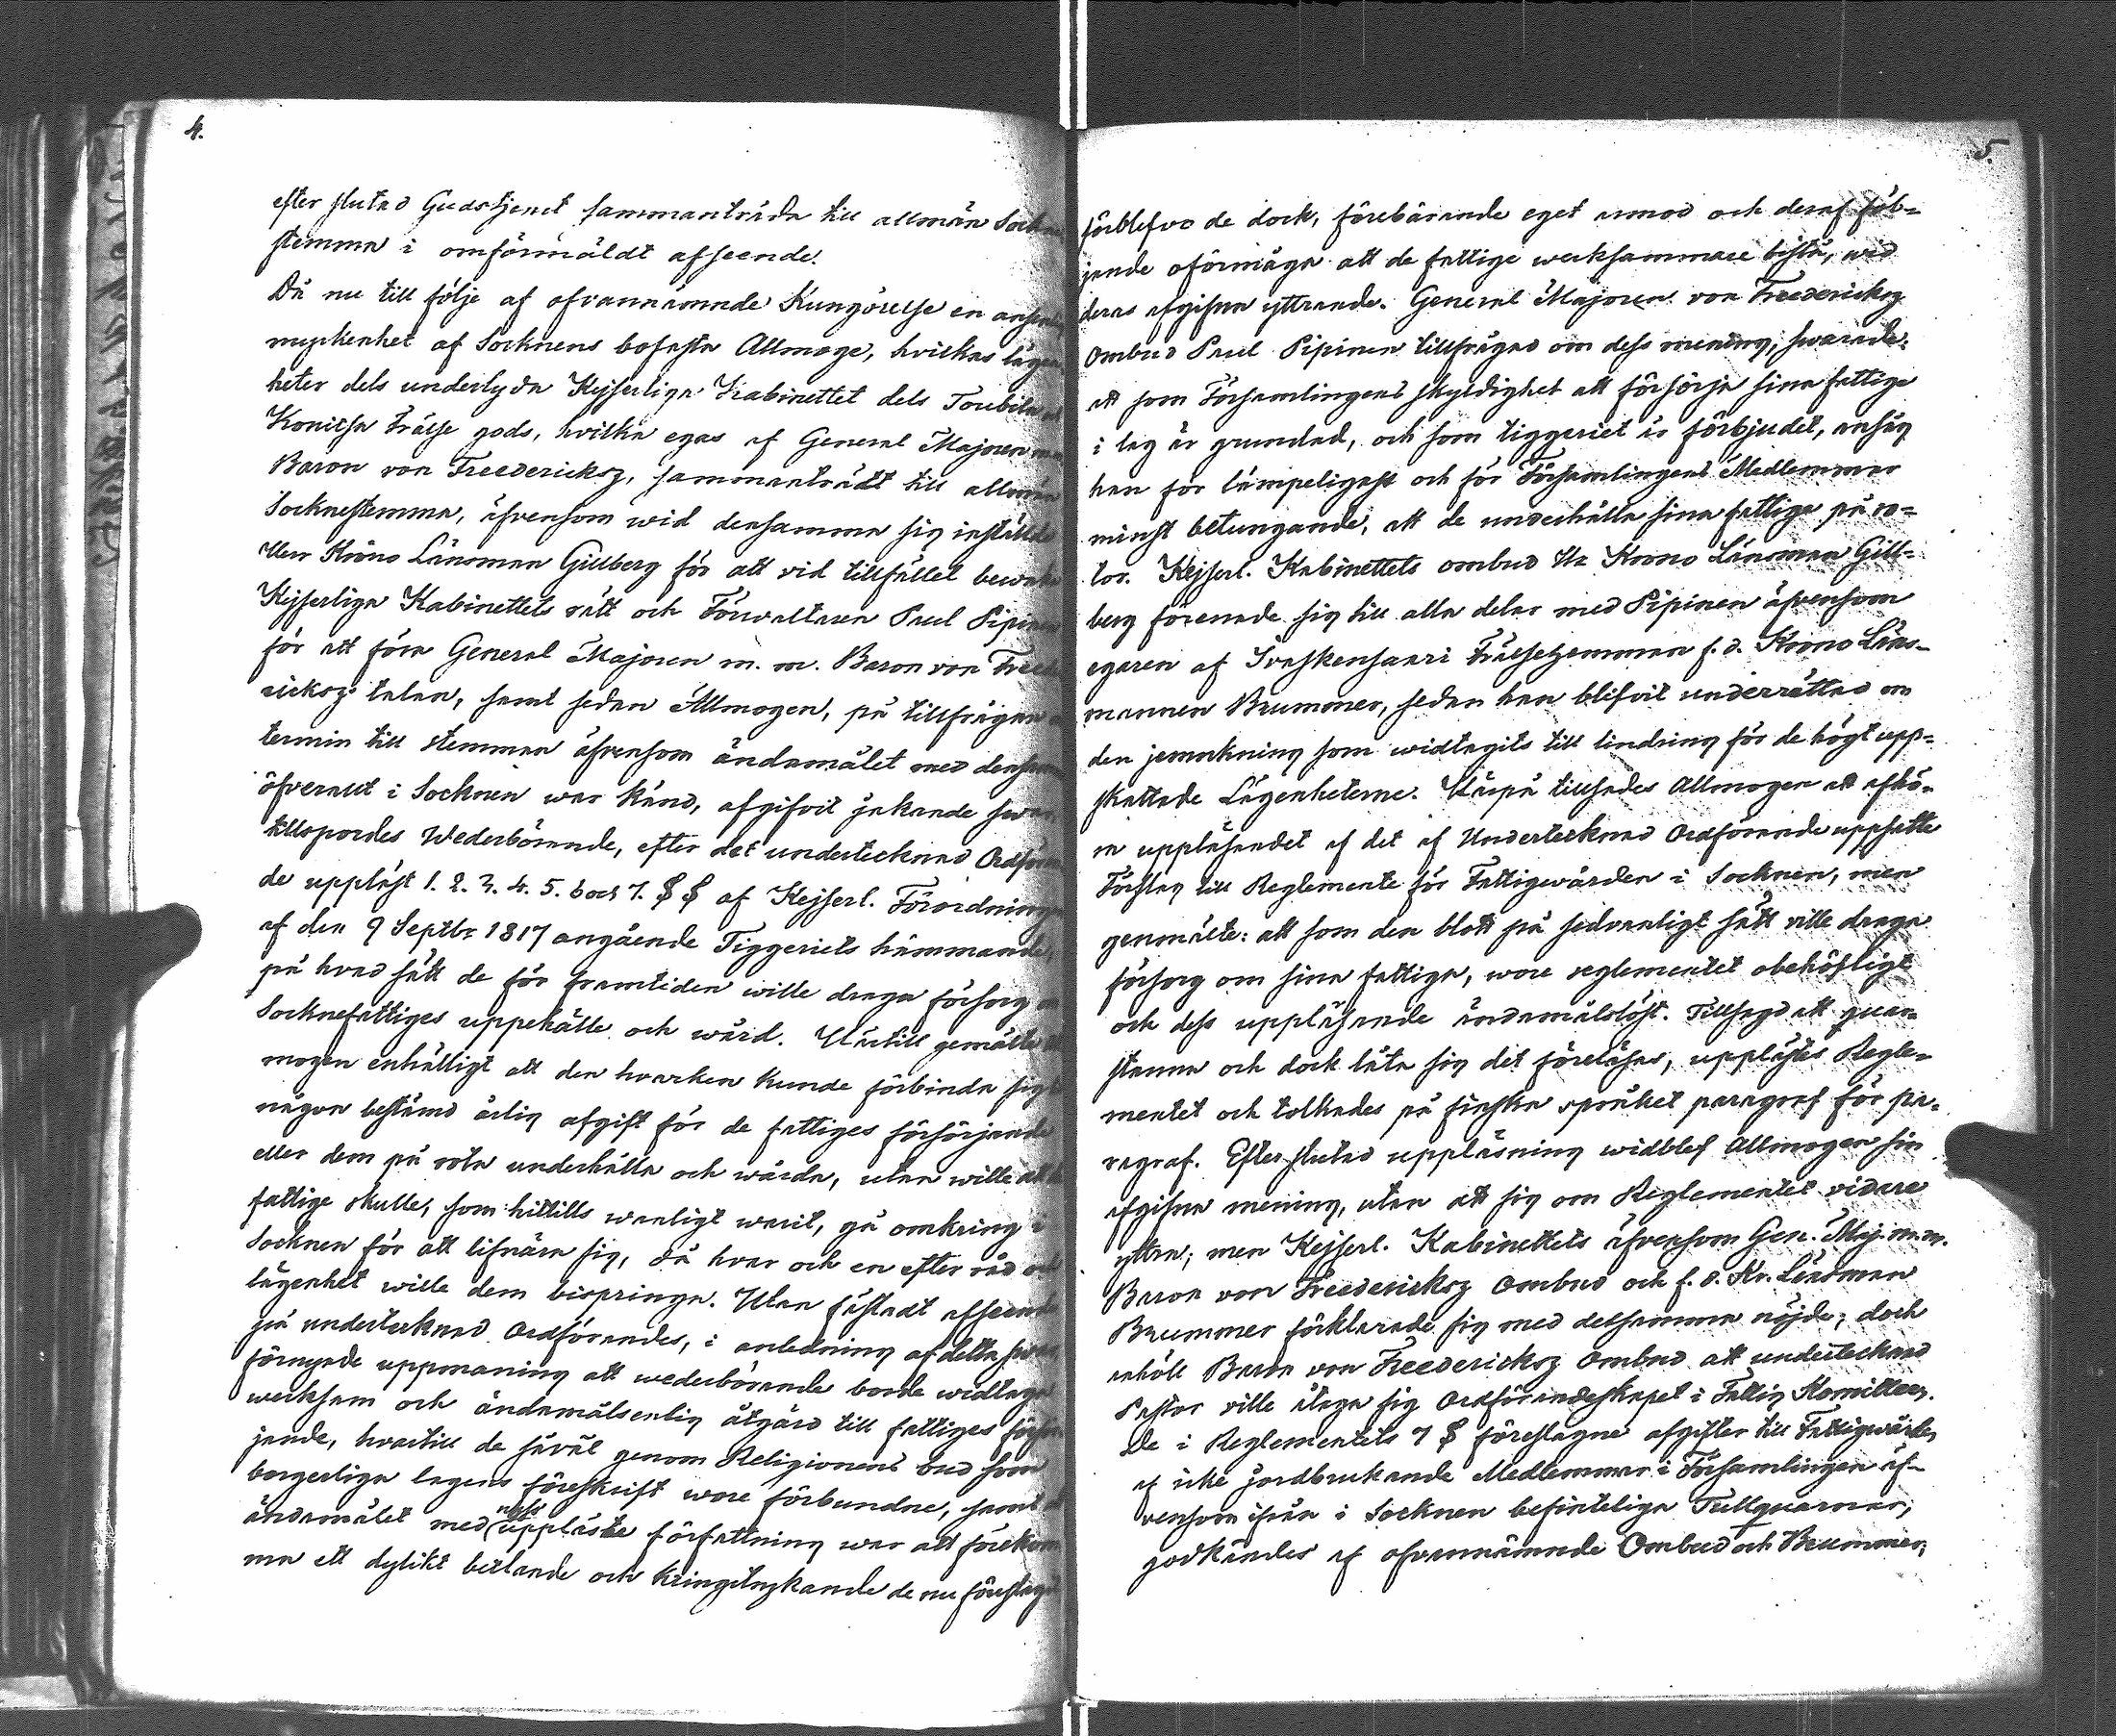 4.
efter slutad Gudstjenst sammanträda till allmän Sock
stemma i omförmäldt afseende.
Då nu till följe af ofvannämnde Kungörelse en
myckenhet af Socknens bofasta Allmoge, hvilkas lägen
heter dels underlyda Kejserliga Kabinettet dels Toubila
Konitsa frälse gods, hvilka egas af General Majoren
Baron von Freedericksz, sammanträdt till allmän
Socknestemma, äfvensom wid densamma sig inställde
Herr Krono Länsman Gillberg för att vid tillfället bewaka
Kejserliga Kabinettets rätt och Förvaltaren Paul Pipinen
för att föra General Majoren m. m. Baron von Freede
ricksz talan, samt sedan Allmogen, på tillfrågan
termin till stemman äfvensom ändamålet med densamma
öfverallt i Socknen war känd, afgifvit jakande swar,
tillspordes Wederbörande, efter det undertecknad Ordföran
de uppläst 1. 2. 3. 4. 5. 6 och 7. § § af Kejserl. Förordningen
af den 9 Septbr 1817 angående Tiggeriets hämmande,
på hvad sätt de för framtiden wille draga försorg om
Socknefattiges uppehälle och wård. Härtill genmälte
mogen enhälligt att den hvarken kunde förbinda sig
någon bestämd årlig afgift för de fattiges försörjande
eller dem på rota underhålla och wårda, utan wille att
fattige skulle, som hittills wanligt warit, gå omkring i
Socknen för att lifnära sig, då hvar och en efter råd och
lägenhet wille dem bispringa. Utan fästadt afseende
på undertecknad Ordförandes, i anledning af detta swar,
förnyade uppmaning att wederbörande borde widtaga
werksam och ändamålsenlig åtgärd till fattiges försör
jande, hvartill de såväl genom Religionens bud som
borgerliga lagens föreskrift wore förbundne, samt
ändamålet med uppläste författning war att förekom
ma ett dylikt betlande och kringstrykande de nu föreslagit
5.
förblefvo de dock, förebärande eget armod och deraf föl-
jande oförmåga att de fattige werksammare bistå, wid
deras afgifna yttrande. General Majoren von Freedericksz
Ombud Paul Pipinen tillfrågad om dess mening, swarade:
att som Församlingens skyldighet att försörja sina fattige
i lag är grundad, och som tiggeriet är förbjudet, ansåg
han för lämpeligast och för Församlingens Medlemmar
minst betungande, att de underhålla sina fattige på ro-
tor. Kejserl. Kabinettets ombud Hr Krono Länsman Gill-
berg förenade sig till alla delar med Pipinen äfvensom
egaren af Ivaskensaari Frälsehemman f. d. Krono Läns-
mannen Brummer, sedan han blifvit underrättad om
den jemnkning som widtagits till lindring för de högt upp-
skattade Lägenheterne. Härpå tillsades Allmogen att afhö-
ra uppläsandet af det af Undertecknad Ordförande uppsatte
Förslag till Reglemente för Fattigwården i Socknen, men
genmälte: att som den blott på sedvanligt sätt ville draga
försorg om sina fattiga, wore reglementet obehöfligt
och dess uppläsande ändamålslöst. Tillsagd att qvar-
stanna och dock låta sig det föreläsas, upplästes Regle-
mentet och tolkades på finska språket paragraf för pa-
ragraf. Efter slutad uppläsning widblef Allmogen sin
afgifna mening, utan att sig om Reglementet vidare
yttra; men Kejserl. Kabinettets äfvensom Gen. Maj. m. m.
Baron von Freedericksz Ombud och f. d. Kr. Länsman
Brummer förklarade sig med detsamma nöjde; dock
anhöll Baron von Freedericksz Ombud att undertecknad
Pastor ville åtaga sig Ordförandeskapet i Fattig Komitteen.
De i Reglementets 7 § föreslagne afgifter till Fattigwården
af icke jordbrukande Medlemmar i Församlingen äf-
vensom ifrån i Socknen befinteliga Tullquarnar,
godkändes af ofvannämnde Ombud och Brummer,